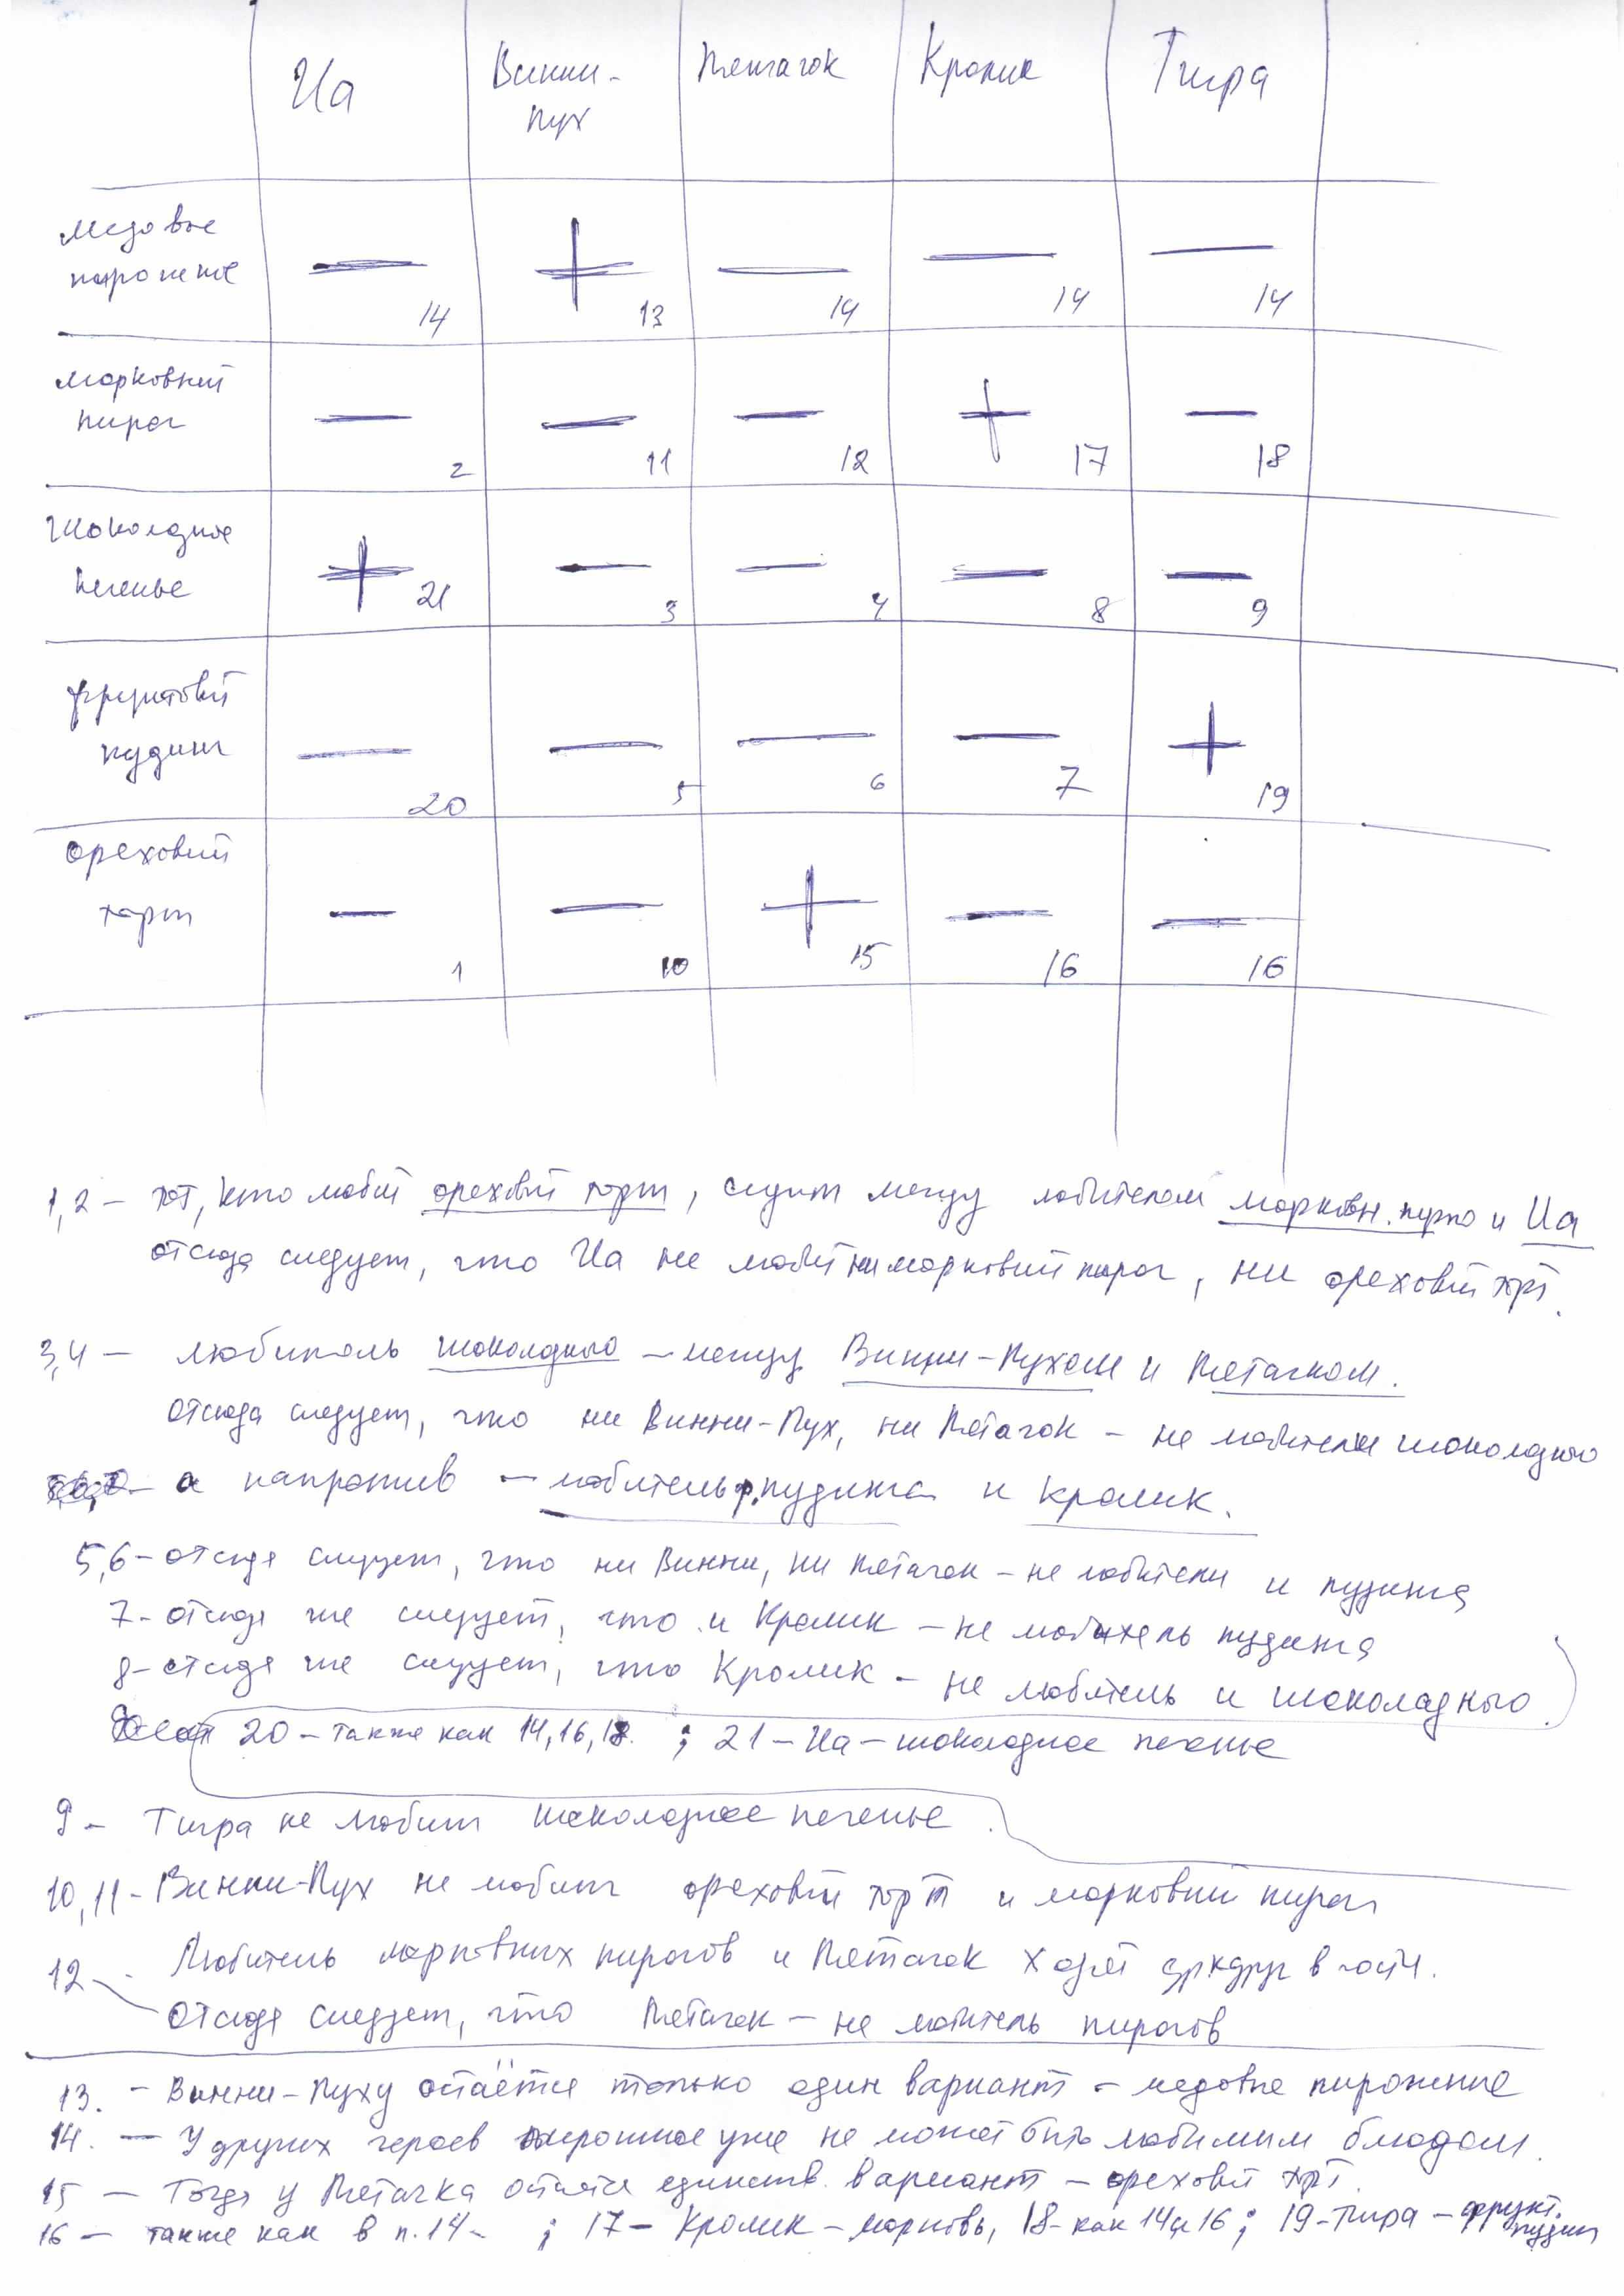 Иа Винни-Пух Пятачок Кролик Тигра
медовое пирожное — 14 + 13 — 14 — 14 — 14
морковный пирог — 2 — 11 — 12 + 17 — 18
шоколадное печенье + 21 — 3 — 4 — 8 — 9
фруктовый пудинг — 20 — 5 — 6 — 7 + 19
ореховый торт — 1 — 10 + 15 — 16 — 16
1,2 – тот, кто любит ореховый торт, сидит между любителем морковн. пирога и Иа
отсюда следует, что Иа не любит ни морковный пирог, ни ореховый торт.
3,4 – любитель шоколадного – между Винни-Пухом и Пятачком.
отсюда следует, что ни Винни-Пух, ни Пятачок – не любители шоколадного
а напротив – любитель ф. пудинга и Кролик.
5,6 – отсюда следует, что ни Винни, ни Пятачок – не любители и пудинга
7 – отсюда же следует, что и Кролик – не любитель пудинга
8 – отсюда же следует, что Кролик – не любитель и шоколадного.
20 – также как 14, 16, 18. ; 21 – Иа – шоколадное печенье
9 – Тигра не любит шоколадное печенье.
10,11 – Винни-Пух не любит ореховый торт и морковный пирог
12 – Любитель морковных пирогов и Пятачок ходят друг к другу в гости.
отсюда следует, что Пятачок – не любитель пирогов
13. – Винни-Пуху остаётся только один вариант – медовое пирожное
14. – У других героев пирожное уже не может быть любимым блюдом.
15 – Тогда у Пятачка остаётся единств. вариант – ореховый торт.
16 – также как в п. 14 – ; 17 – Кролик – морковь, 18 – как 14 и 16 ; 19 – Тигра – фрукт. пудинг